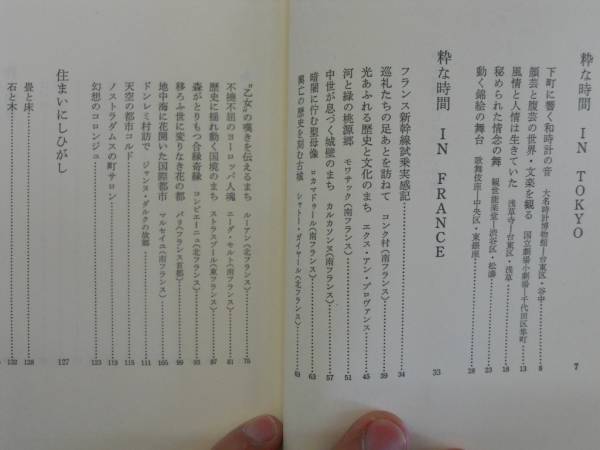 粋な時間 IN TOKYO 7
下町に響く和時計の音 大名時計博物館―台東区・谷中 8
顔芸と腹芸の世界・文楽を観る 国立劇場小劇場―千代田区隼町 13
風情と人情は生きていた 浅草寺―台東区・浅草 18
秘められた情念の舞 観世能楽堂―渋谷区・松濤 23
動く錦絵の舞台 歌舞伎座―中央区・東銀座 28
粋な時間 IN FRANCE 33
フランス新幹線試乗実感記 34
巡礼たちの足あとを訪ねて コンク村(南フランス) 39
光あふれる歴史と文化のまち エクス・アン・プロヴァンス 45
河と緑の桃源郷 モワサック(南フランス) 51
中世が息づく城壁のまち カルカソンヌ(南フランス) 57
暗闇に佇む聖母像 ロカマドゥール(南フランス) 63
興亡の歴史を刻む古城 シャトー・ガイヤール(北フランス) 69
“乙女”の嘆きを伝えるまち ルーアン(北フランス) 75
不撓不屈のヨーロッパ人魂 ニーダ・セルト(南フランス) 81
歴史に揺れ動く国境のまち ストラスブール(東フランス) 87
森がとりもつ合縁奇縁 コンピエーニュ(北フランス) 93
移ろふ世に変りなき花の都 パリ(フランス首都) 99
地中海に花開いた国際都市 マルセイユ(南フランス) 105
ドンレミ村訪で ジャンヌ・ダルクの故郷 111
天空の都市コルド 115
ノストラダムスの町サロン 119
幻想のコロンジュ 123
住まいにしひがし 127
畳と床 128
石と木 132